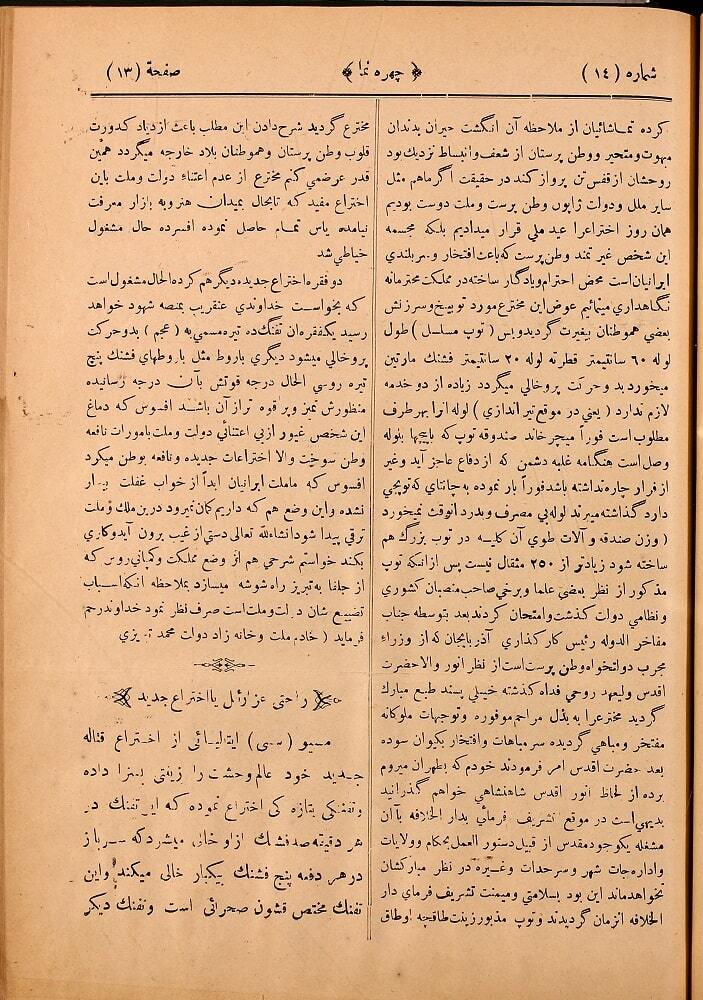 شماره (١٤)
﴿ چهره نما ﴾
صفحة (١٣)
كرده تماشائيان از ملاحظه آن انگشت حيران بدندان
مبهوت ومتحير ووطن پرستان از شعف وانبساط نزديك بود
روحشان از قفس تن پرواز كند در حقيقت اگر ماهم مثل
ساير ملل ودولت ژاپون وطن پرست وملت دوست بوديم
همان روز اختراعرا عيد ملی قرار ميداديم بلكه مجسمه
اين شخص غيرتمند وطن پرست كه باعث افتخار وسربلندی
ايرانيان است محض احترام ويادگار ساخته در مملكت محترمانه
نگاهداری مينمائيم عوض اين مخترع مورد توبيخ وسرزنش
بعضی هموطنان بيغيرت گرديد وبس ( توپ مسلسل ) طول
لوله ٦٠ سانتيمتر قطر ته لوله ٢٠ سانتيمتر فشنك مارتين
ميخورد بد وحركت پر وخالی ميگردد زياده از دو خدمه
لازم ندارد ( يعنی در موقع تير اندازی ) لوله انرا بهر طرف
مطلوب است فوراً ميچرخاند صندوقه توپ كه باپيچها بلوله
وصل است هنگامه غلبه دشمن كه از دفاع عاجز آيد وغير
از فرار چاره نداشته باشد فوراً باز نموده به چانتای كه توپچی
دارد گذاشته ميبرند لوله بی مصرف وبدرد انوقت نميخورد
( وزن صندقه وآلات طوی آن كليه در توپ بزرك هم
ساخته شود زيادتر از ٢٥٠ مثقال نيست پس از انكه توپ
مذكور از نظر بعضی علما وبرخی صاحب منصبان كشوری
ونظامی دولت گذشت وامتحان كردند بعد بتوسطه جناب
مفاخر الدوله رئيس كارگذاری آذربايجان كه از وزراء
مجرب دولتخواه وطن پرست است از نظر انور والا حضرت
اقدس وليعهد روحی فداه گذشته خيلی پسند طبع مبارك
گرديد مخترعرا به بذل مراحم موفوره وتوجهات ملوكانه
مفتخر ومباهی گرديده سر مباهات وافتخار بكيوان سوده
بعد حضرت اقدس امر فرمودند خودم كه بطهران ميروم
برده از لحاظ انور اقدس شاهنشاهی خواهم گذرانيد
بديهی است در موقع تشريف فرمائی بدار الخلافه باآن
مشغله يكوجود مقدس از قبيل دستور العمل بحكام وولايات
واداره جات شهر وسرحدات وغيره در نظر مباركشان
نخواهد ماند اين بود بسلامتی وميمنت تشريف فرمای دار
الخلافه انزمان گرديدند وتوپ مذبور زينت طاقچه اوطاق
مخترع گرديد شرح دادن اين مطلب باعث ازدياد كدورت
قلوب وطن پرستان وهموطنان بلاد خارجه ميگردد همين
قدر عرض می كنم مخترع از عدم اعتناء دولت وملت باين
اختراع مفيد كه تابحال بميدان هنر وبه بازار معرفت
نيامده ياس تمام حاصل نموده افسرده حال مشغول
خياطی شد
دو فقره اختراع جديده ديگر هم كرده الحال مشغول است
كه بخواست خداوندی عنقريب بمنصه شهود خواهد
رسيد يكفقره ان تفنك ده تيره مسمی به ( عجم ) بدو حركت
پر وخالی ميشود ديگری باروط مثل باروطهای فشنك پنج
تيره روسی الحال درجه قوتش بآن درجه رسانيده
منظورش تميز وپر قوه تر از آن باشد افسوس كه دماغ
اين شخص غيور از بی اعتنائی دولت وملت بامورات نافعه
وطن سوخت والا اختراعات جديده ونافعه بوطن ميكرد
افسوس كه ماملت ايرانيان ابداً از خواب غفلت بيدار
نشده واين وضع هم كه داريم گمان نميرود در بن ملك وملت
ترقی پيدا شود انشاءلله تعالی دستی از غيب برون آيد وكاری
بكند خواستم شرحی هم از وضع مملكت وكمپانی روس كه
از جلفا به تبريز راه شوشه ميسازد بملاحظه انكه اسباب
تضييع شان دولت وملت است صرف نظر نمود خداوند رحم
فرمايد ( خادم ملت وخانه زاد دولت محمد تبريزی
راحتی عزرائل يا اختراع جديد
مسيو ( سی ) ايتاليائی از اختراع قتاله
جديد خود عالم وحشت را زينتی بسزا داده
وتفنگی بتازه كی اختراع نموده كه اين تفنك در
هر دقيقه صد فشنك از او خالی ميشود كه سرباز
در هر دفعه پنج فشنك بيكبار خالی ميكند واين
تفنك مختص قشون صحرائی است وتفنك ديكر